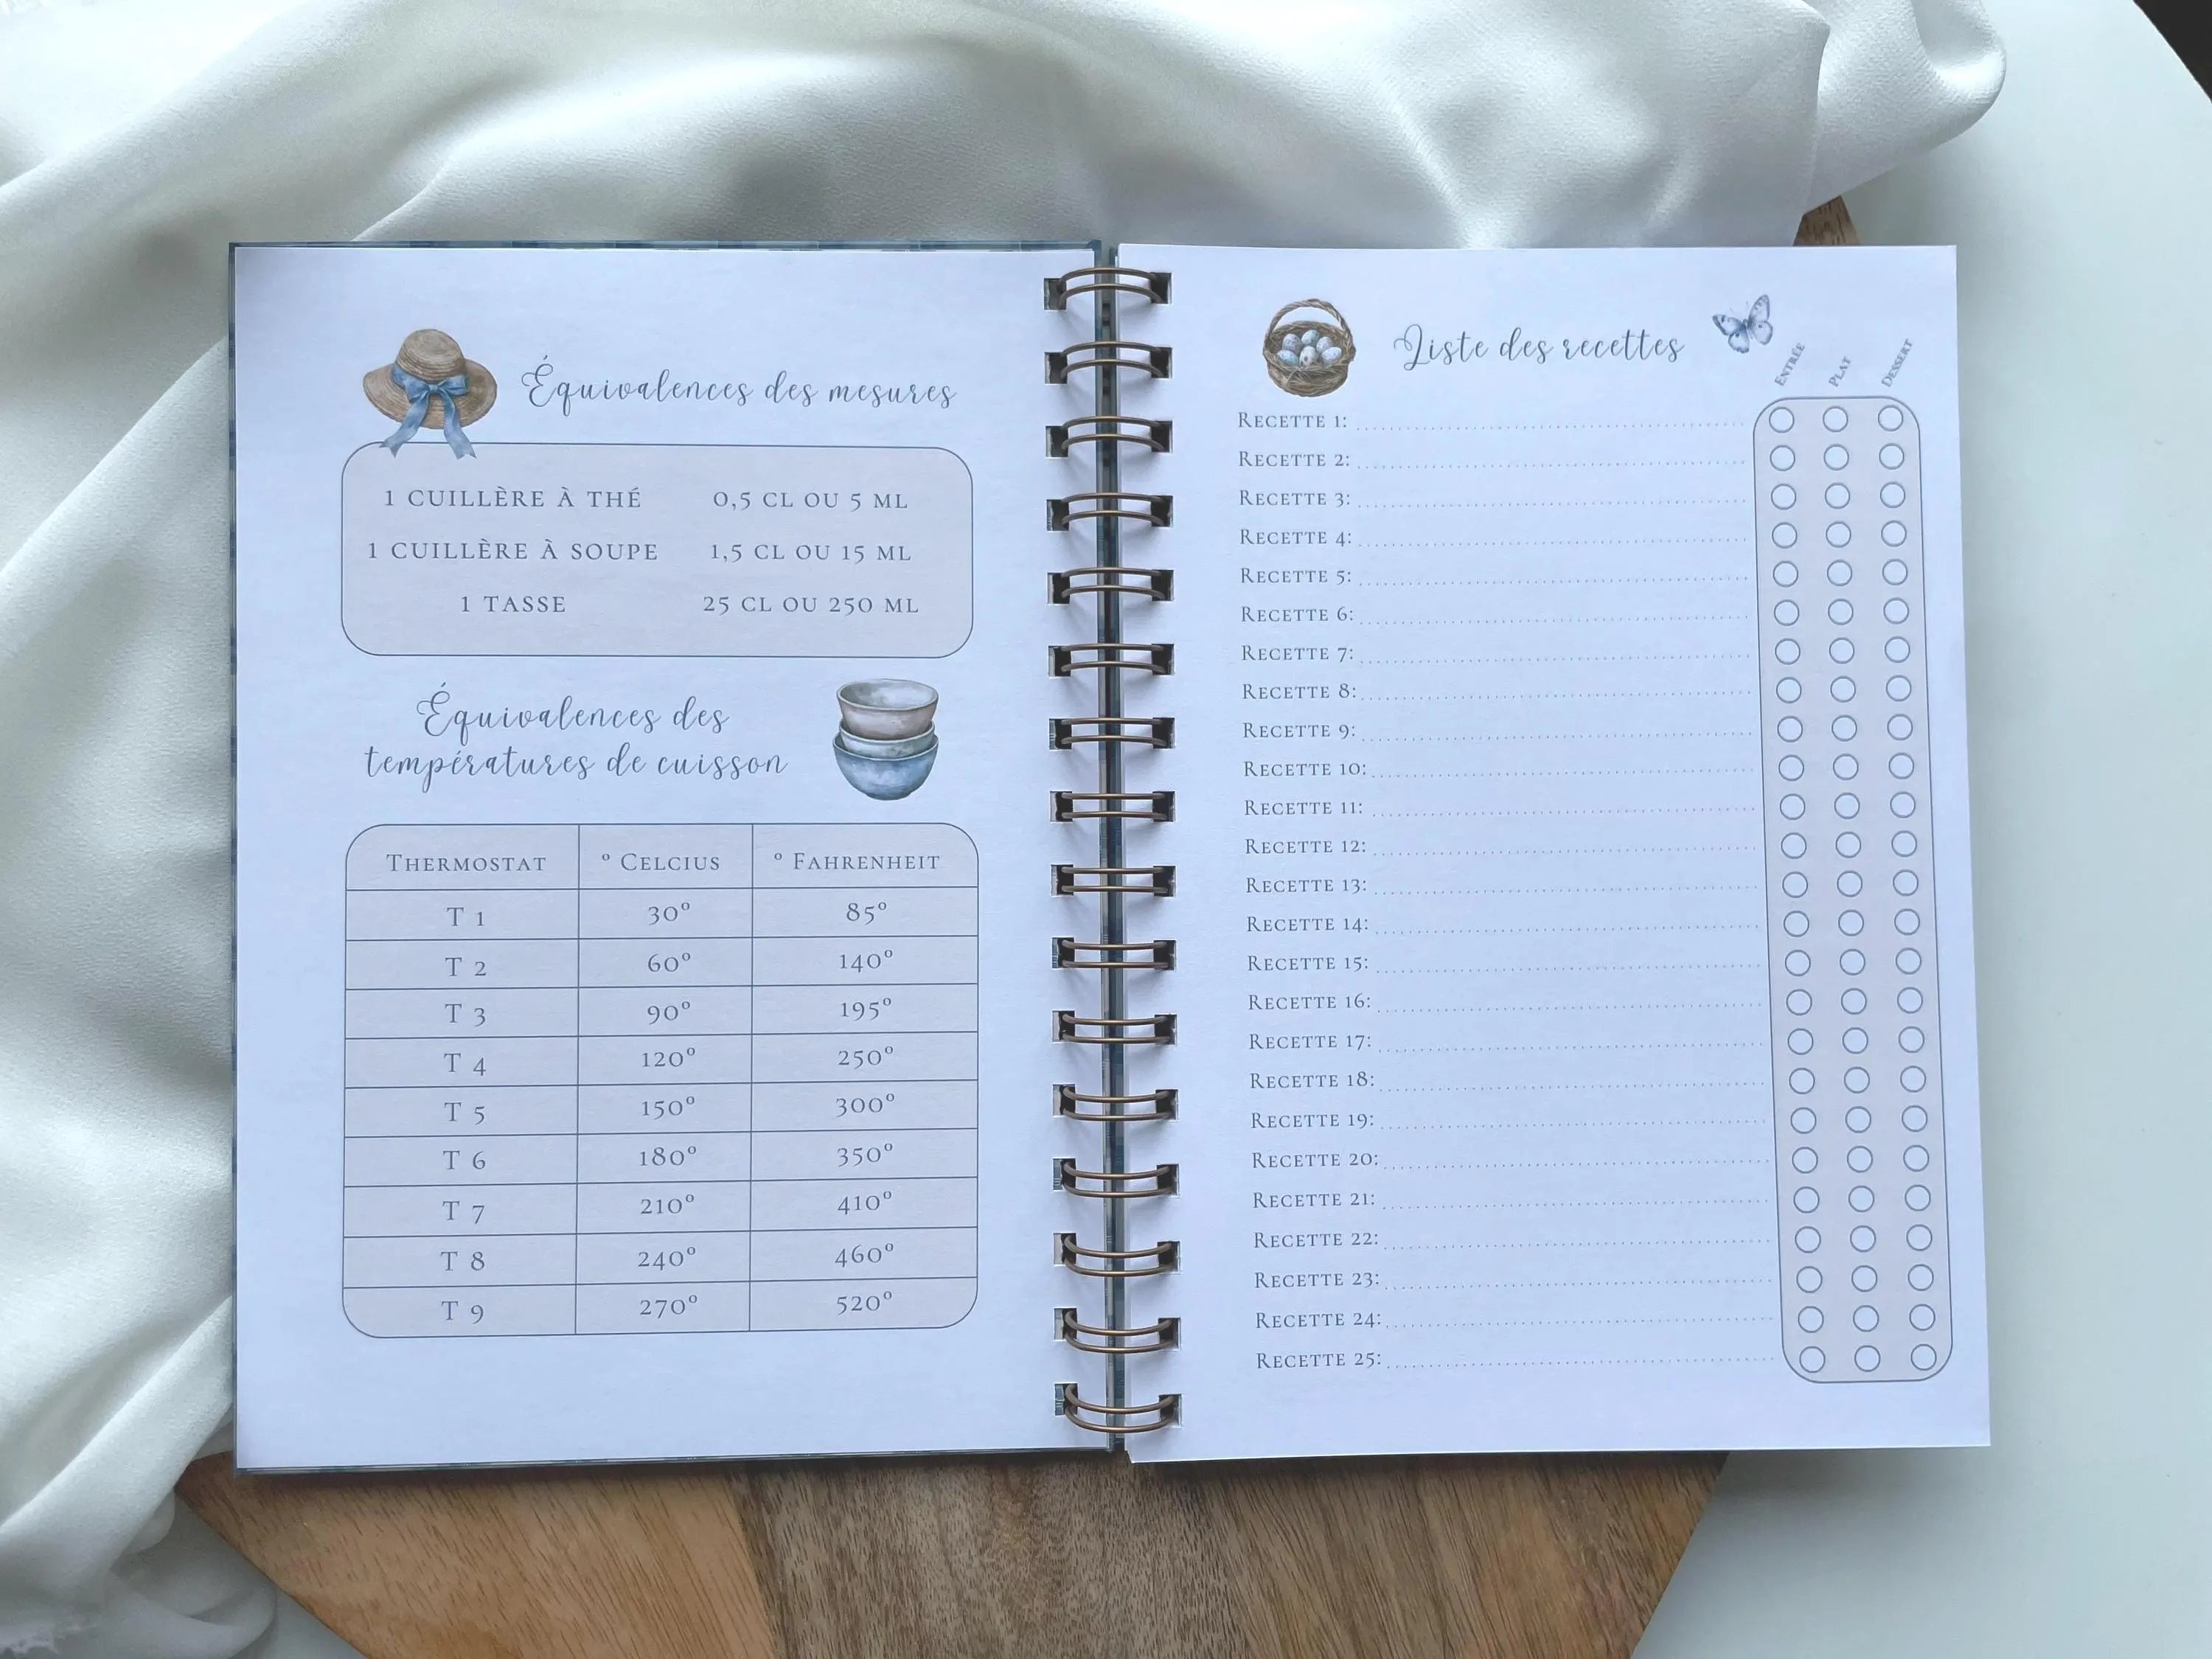 Équivalences des mesures
1 CUILLÈRE À THÉ 0,5 CL OU 5 ML
1 CUILLÈRE À SOUPE 1,5 CL OU 15 ML
1 TASSE 25 CL OU 250 ML
Équivalences des
températures de cuisson
THERMOSTAT ° CELCIUS ° FAHRENHEIT
T 1 30° 85°
T 2 60° 140°
T 3 90° 195°
T 4 120° 250°
T 5 150° 300°
T 6 180° 350°
T 7 210° 410°
T 8 240° 460°
T 9 270° 520°
Liste des recettes
ENTRÉE PLAT DESSERT
RECETTE 1:
RECETTE 2:
RECETTE 3:
RECETTE 4:
RECETTE 5:
RECETTE 6:
RECETTE 7:
RECETTE 8:
RECETTE 9:
RECETTE 10:
RECETTE 11:
RECETTE 12:
RECETTE 13:
RECETTE 14:
RECETTE 15:
RECETTE 16:
RECETTE 17:
RECETTE 18:
RECETTE 19:
RECETTE 20:
RECETTE 21:
RECETTE 22:
RECETTE 23:
RECETTE 24:
RECETTE 25: